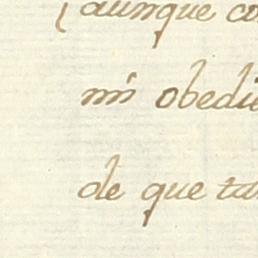 (aunque co
mi obedie
de que ta